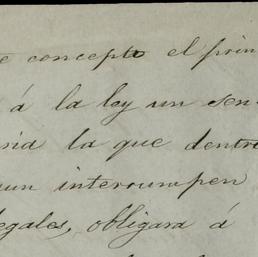 e concepto el prin
á la ley un sen
ria la que dentro
un interrumpen
legales, obligara á